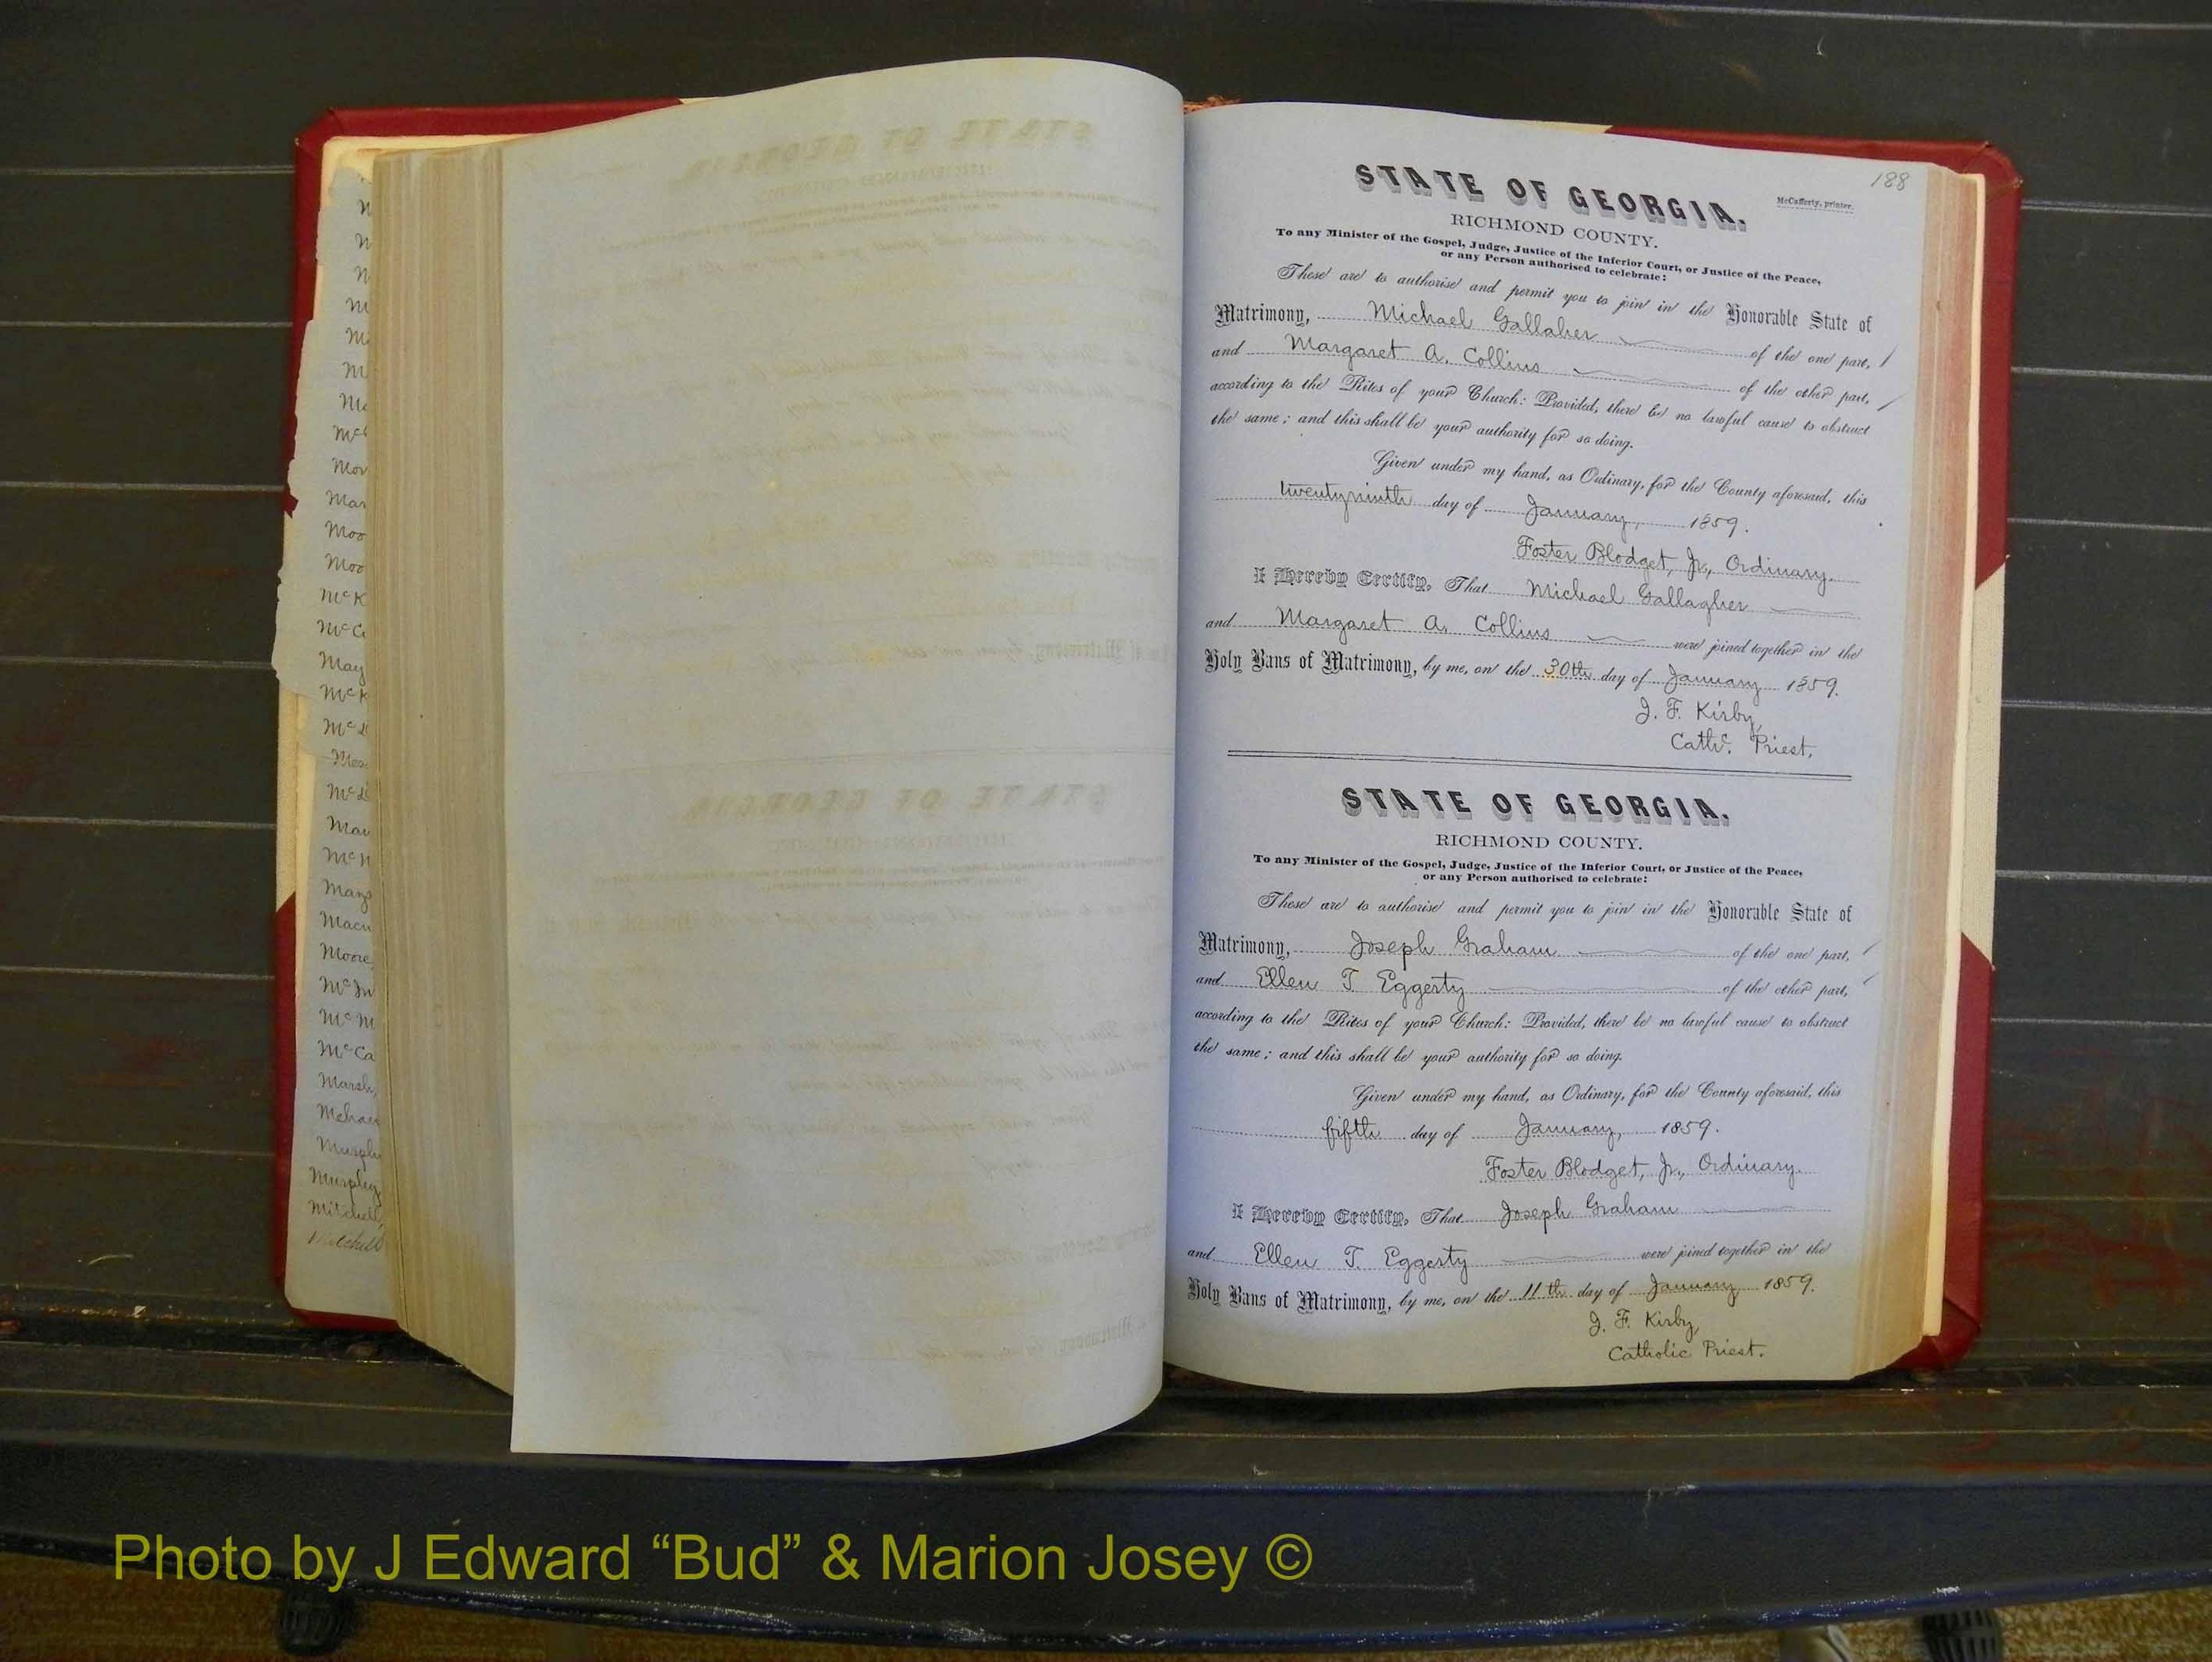 188
STATE OF GEORGIA.
McCafferty, printer.
RICHMOND COUNTY.
To any Minister of the Gospel, Judge, Justice of the Inferior Court, or Justice of the Peace,
or any Person authorised to celebrate:
These are to authorise and permit you to join in the Honorable State of
Matrimony, Michael Gallaher of the one part,
and Margaret A. Collins of the other part,
according to the Rites of your Church: Provided, there be no lawful cause to obstruct
the same; and this shall be your authority for so doing.
Given under my hand, as Ordinary, for the County aforesaid, this
twentyninth day of January, 1859.
Foster Blodget, Jr., Ordinary.
I Hereby Certify, That Michael Gallagher
and Margaret A. Collins were joined together in the
Holy Bans of Matrimony, by me, on the 30th day of January 1859.
J. F. Kirby,
Cathc. Priest.
STATE OF GEORGIA.
RICHMOND COUNTY.
To any Minister of the Gospel, Judge, Justice of the Inferior Court, or Justice of the Peace,
or any Person authorised to celebrate:
These are to authorise and permit you to join in the Honorable State of
Matrimony, Joseph Graham of the one part,
and Ellen T Eggerty of the other part,
according to the Rites of your Church: Provided, there be no lawful cause to obstruct
the same; and this shall be your authority for so doing.
Given under my hand, as Ordinary, for the County aforesaid, this
fifth day of January, 1859.
Foster Blodget, Jr., Ordinary.
I Hereby Certify, That Joseph Graham
and Ellen T. Eggerty were joined together in the
Holy Bans of Matrimony, by me, on the 11th day of January 1859.
J. F. Kirby,
Catholic Priest.
Moore,
Murphy
Mitchell,
Photo by J Edward “Bud” & Marion Josey ©